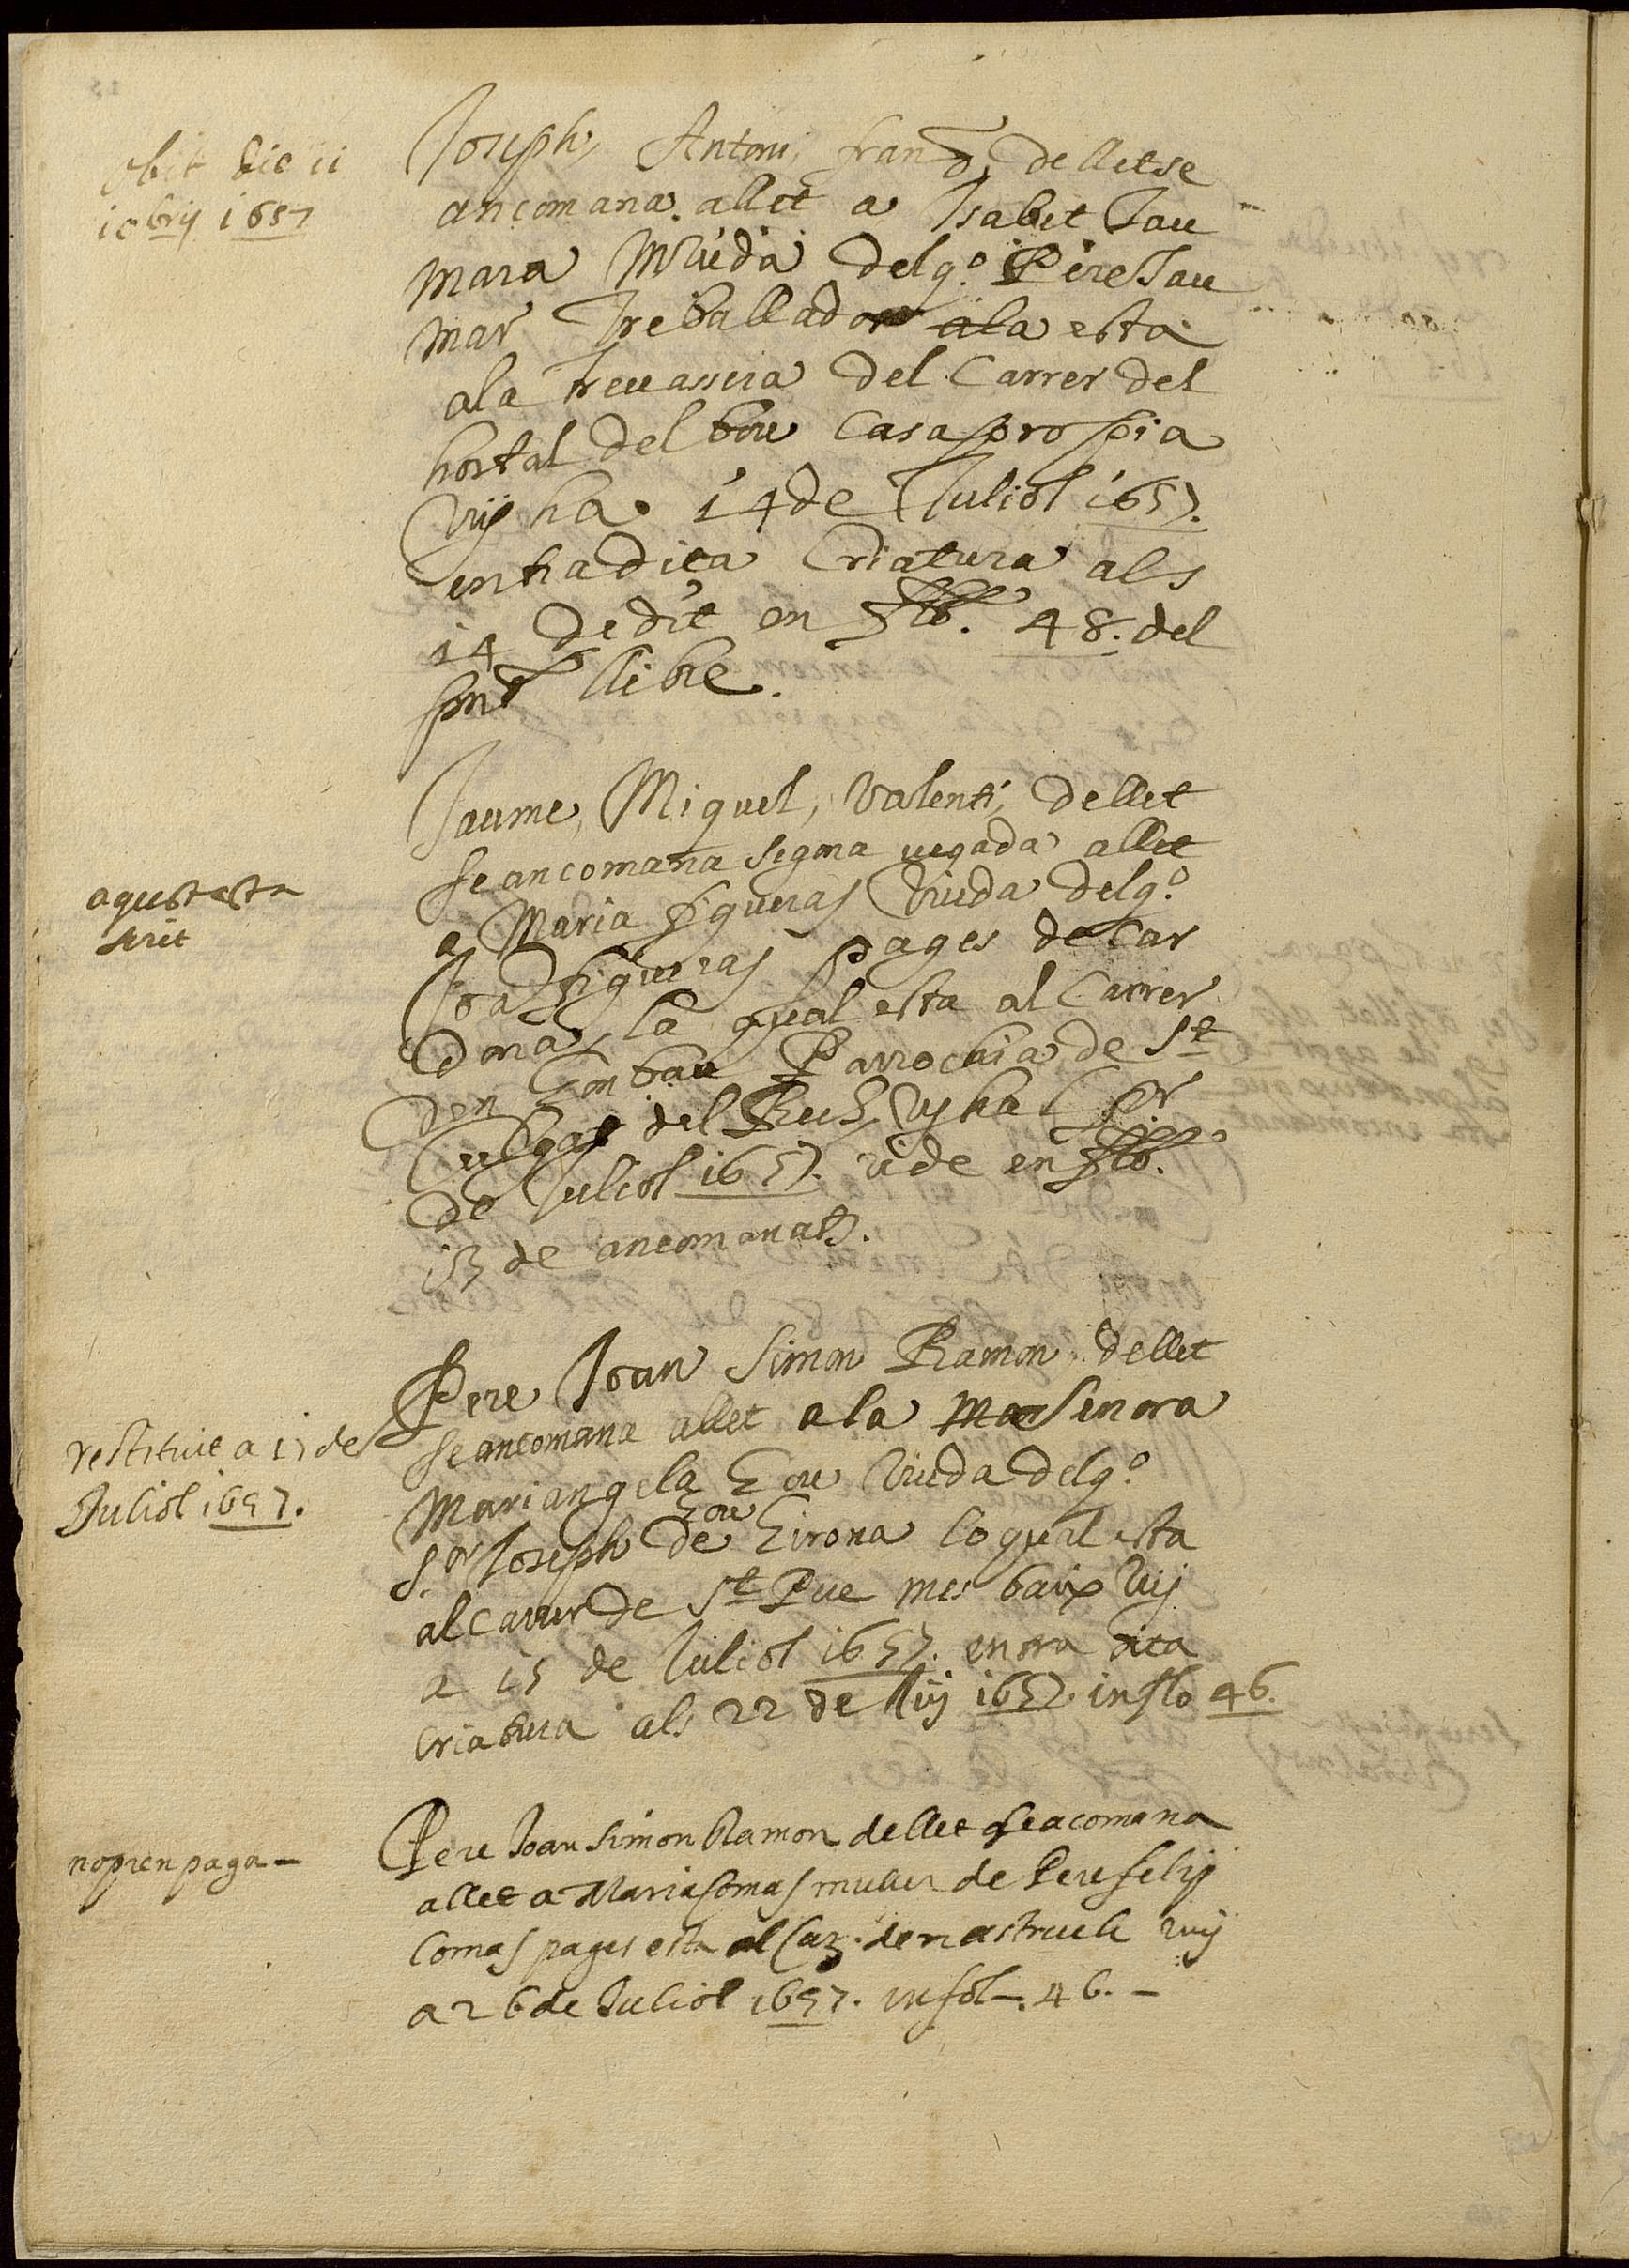 obit die 11
10bris 1657
Joseph, Antoni, franco, de llet se
ancomana. a llet a Isabet Jau
mara Viuda del qo. Pere Jau
mar Treballador ala esta
a la Trevassera del Carrer del
hostal del bou Casa propia
Vuy ha 14 de Juliol 1657.
entra dita Criatura als
14 de dit en fto. 48. del
pnt llibre.
Jaume, Miquel, Valenti, de llet
se ancomana segona vegada a llet
a Maria figueras Viuda del qo.
Joan figueras pages de Car
dona, la qual esta al Carrer
den Gombau Parrochia de St
Cugat del Rech, Vuy ha Pr
de Juliol 1657. vide en fto.
153 de ancomanats.
aquest esta
scrit
Pere Joan Simon Ramon, de llet
se ancomana a llet a la Senora
Mariangela Zou Viuda del qo.
Sor Joseph de Zou Girona lo qual esta
al carrer de St Pere mes baix Vuy
a 15 de Juliol 1657. entra dita
criatura als 22 de Juny 1657. in fto 46.
restituit a 17 de
Juliol 1657.
Pere Joan Simon Ramon de llet se acomana
a llet a Maria Comas muller de Pere felip
Comas pages esta al Car. den astruch vuy
a 26 de Juliol 1657. in fol. 46.
no pren paga